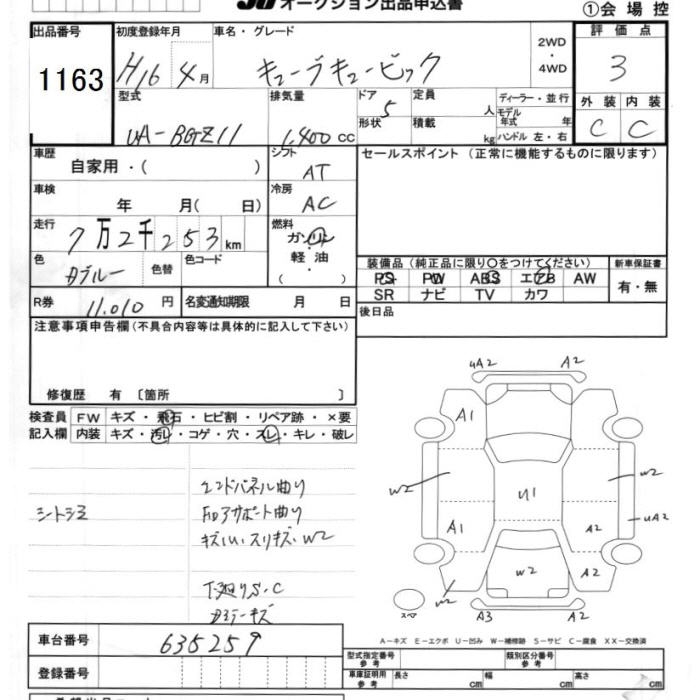 オークション出品申込書
①会場控
出品番号
1163
初度登録年月
H16 4月
車名・グレード
キューブキュービック
2WD
・
4WD
評価点
3
型式
UA-BGZ11
排気量
1,400 cc
ドア 5
形状
定員 人
積載 kg
ディーラー・並行
モデル年式 年
ハンドル 左・右
外装 内装
C C
車歴
自家用・( )
シフト
AT
セールスポイント (正常に機能するものに限ります)
車検
年 月( 日)
冷房
AC
走行
7万2千253km
燃料
ガソリン
・
軽油
色 色替 色コード
装備品(純正品に限り○をつけてください)
新車保証書
PS PW ABS エアB AW
SR ナビ TV カワ
有・無
R券
11,010円
名変通知期限 月 日
後日品
注意事項申告欄(不具合内容等は具体的に記入して下さい)
修復歴 有〔箇所 〕
検査員 FW キズ・飛石・ヒビ割・リペア跡・×要
記入欄 内装 キズ・汚レ・コゲ・穴・スレ・キレ・破レ
uA2 A2
A1
W2 W2
U1
A1 A2 uA2
W2 A2
W2
スペ A3 A2
エンドパネル曲り
シトシミ
サポート曲り
キズ
スリキズ、W2
A-キズ E-エクボ U-凹み W-補修跡 S-サビ C-腐食 XX-交換済
車台番号
635259
登録番号
型式指定番号 参考
類別区分番号 参考
車庫証明用 参考
長さ cm 幅 cm 高さ cm